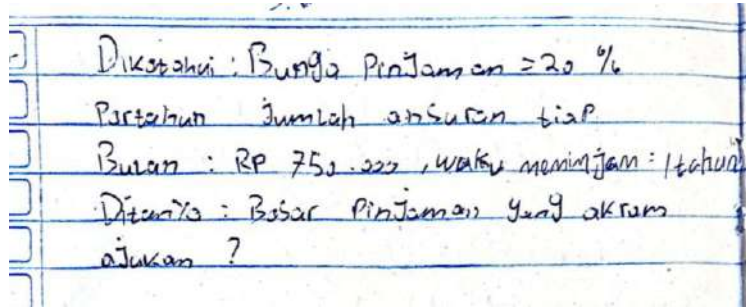 Diketahui : Bunga Pinjaman = 20 %
Pertahun Jumlah ansuran tiap
Bulan : RP 750.000 , waktu meminjam : 1 tahun
Ditanya : Besar Pinjaman yang akram
ajukan ?